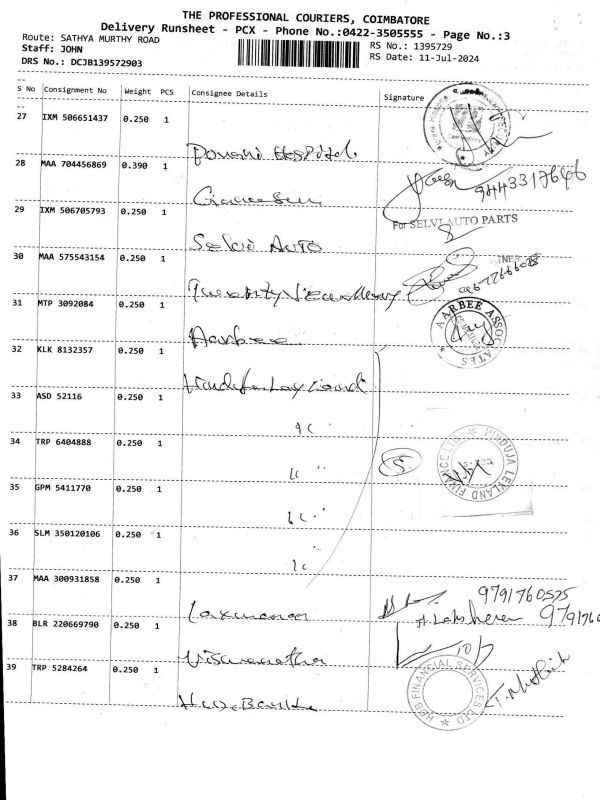 THE PROFESSIONAL COURIERS, COIMBATORE
Delivery Runsheet - PCX - Phone No.:0422-3505555 - Page No.:3
Route: SATHYA MURTHY ROAD
RS No.: 1395729
Staff: JOHN
RS Date: 11-Jul-2024
DRS No.: DCJB139572903
S No Consignment No Weight PCS Consignee Details Signature
27 IXM 506651437 0.250 1
Hospital
28 MAA 704456869 0.390 1
9443317646
29 IXM 506705793 0.250 1
For SELVI AUTO PARTS
Selvi Auto
30 MAA 575543154 0.250 1
31 MTP 3092084 0.250 1
AARBEE ASSOCIATES
Aarbee
32 KLK 8132357 0.250 1
33 ASD 52116 0.250 1
34 TRP 6404888 0.250 1
5
HINDUJA LEYLAND FINANCE LTD
35 GPM 5411770 0.250 1
36 SLM 350120106 0.250 1
37 MAA 300931858 0.250 1
9791760575
Laxmanan
38 BLR 220669790 0.250 1
Viswanathan
39 TRP 5284264 0.250 1
HDB FINANCIAL SERVICES LTD